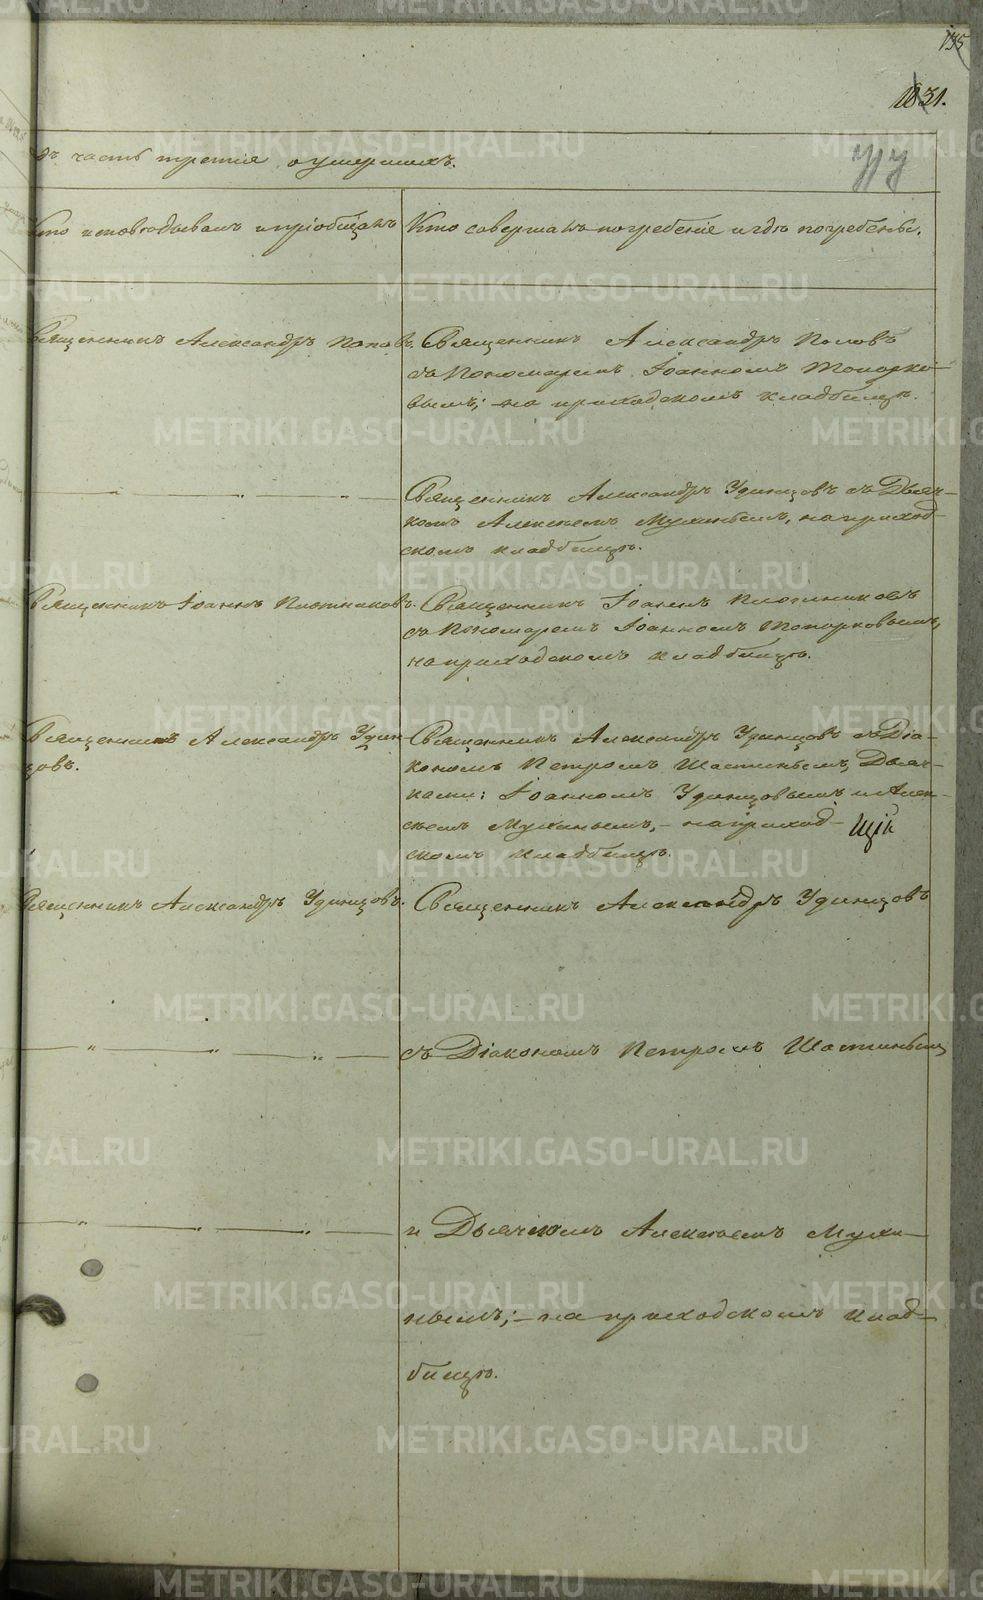 135
1831.
ъ часть третія о умершихъ.
Кто исповѣдывалъ и пріобщалъ
Кто совершалъ погребеніе и гдѣ погребены.
Священникъ Александръ Поповъ.
Священникъ Александръ Поповъ
съ Пономаремъ Іоанномъ Топорко-
вымъ; на приходскомъ кладбищѣ.
Священникъ Александръ Удинцовъ съ Дьяч-
комъ Алексѣемъ Мухинымъ, на приход-
скомъ кладбищѣ.
Священникъ Іоаннъ Плотниковъ.
Священникъ Іоаннъ Плотниковъ
съ Пономаремъ Іоанномъ Топорковымъ,
на приходскомъ кладбищѣ.
Священникъ Александръ Удин-
цовъ.
Священникъ Александръ Удинцовъ съ Діа-
кономъ Петромъ Шастинымъ, Дьяч-
ками: Іоанномъ Удинцовымъ и Алек-
сѣемъ Мухинымъ, - на приход-
скомъ кладбищѣ.
Священникъ Александръ Удинцовъ.
Священникъ Александръ Удинцовъ
съ Діакономъ Петромъ Шастинымъ
и Дьячкомъ Алексѣемъ Мухи-
нымъ; - на приходскомъ клад-
бищѣ.
METRIKI.GASO-URAL.RU